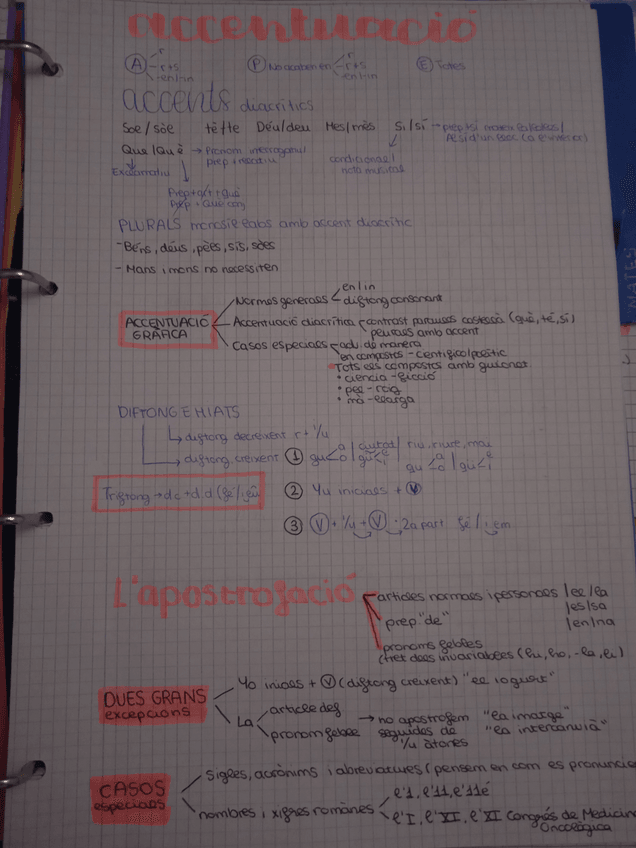 accentuació
A r P r E Totes
r+s No acaben en r+s
en/in en/in
accents diacrítics
Soc/sòc te/te Déu/deu Mes/mès Si/sí → prep+si mateix
Que/Què → Pronom interrogatiu condicional/
prep + relatiu nota musical
Exclamatiu
Prep+art+què
Prep + Que conj
PLURALS monosíl·labs amb accent diacrític
- Béns, déus, pèls, sís, sòls
- Mans i mons no necessiten
en/in
Normes generals diftong consonant
ACCENTUACIÓ GRÀFICA Accentuació diacrítica contrast paraules castellà (què, té, sí)
plurals amb accent
Casos especials adv. de manera
en compostos - científico/poètic
Tots els compostos amb guionet
• ciència-ficció
• pell-roig
• mà-llarga
DIFTONG E HIATS
→ diftong decreixent r + i/u
→ diftong creixent 1 gu a o | ciutat / riu, riure, mai
gü e i gu a o | gü e i
Triftong → d.c + d.d 2 Y/u inicials + V
3 V + i/u + V : 2a part
L'apostrofació articles normals i personals /el/la
prep "de" /es/sa
/en/na
pronoms febles
(tret dels invariables (hu, ho, -la, li)
DUES GRANS Yo inicials + V (diftong creixent) "el iogurt"
excepcions La article def → no apostrofem "la imatge"
pronom feble seguides de "la intercanvià"
i/u àtones
CASOS Sigles, acrònims i abreviatures (pensem en com es pronuncie
especials nombres i xifres romànes l'1, l'11, l'11é
l'I, l'XI, l'XI Congrés de Medicina
Oncològica